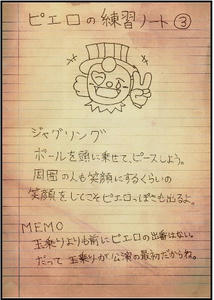 ピエロの練習ノート③
ジャグリング
ボールを頭に乗せて、ピースしよう。
周囲の人も笑顔にするくらいの
笑顔をしてこそピエロっぽさも出るよ。
MEMO
玉乗りよりも前にピエロの出番はない。
だって玉乗りが公演の最初だからね。